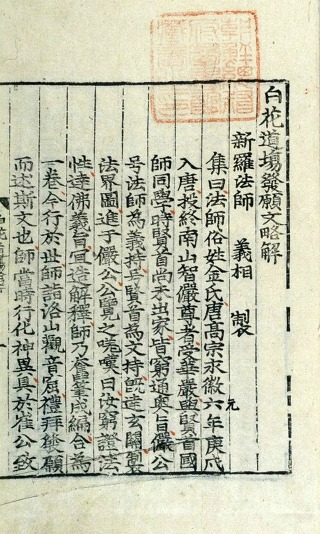 白花道場發願文略解
新羅法師 義相 製
集曰法師俗姓金氏唐高宗永徽六年庚戌
元
入唐投終南山智儼尊者受華嚴與賢首國
師同學時賢首尚未出家皆窮通奧旨儼公
号法師為義持号賢首為文持旣達玄關製
法界圖進于儼公公覽之嘆曰汝窮證法
性達佛義旨宜造解釋師乃奮筆成編合為
一卷今行於世師詣洛山觀音窟禮拜發願
而述斯文也師當時行化神異具於崔公致